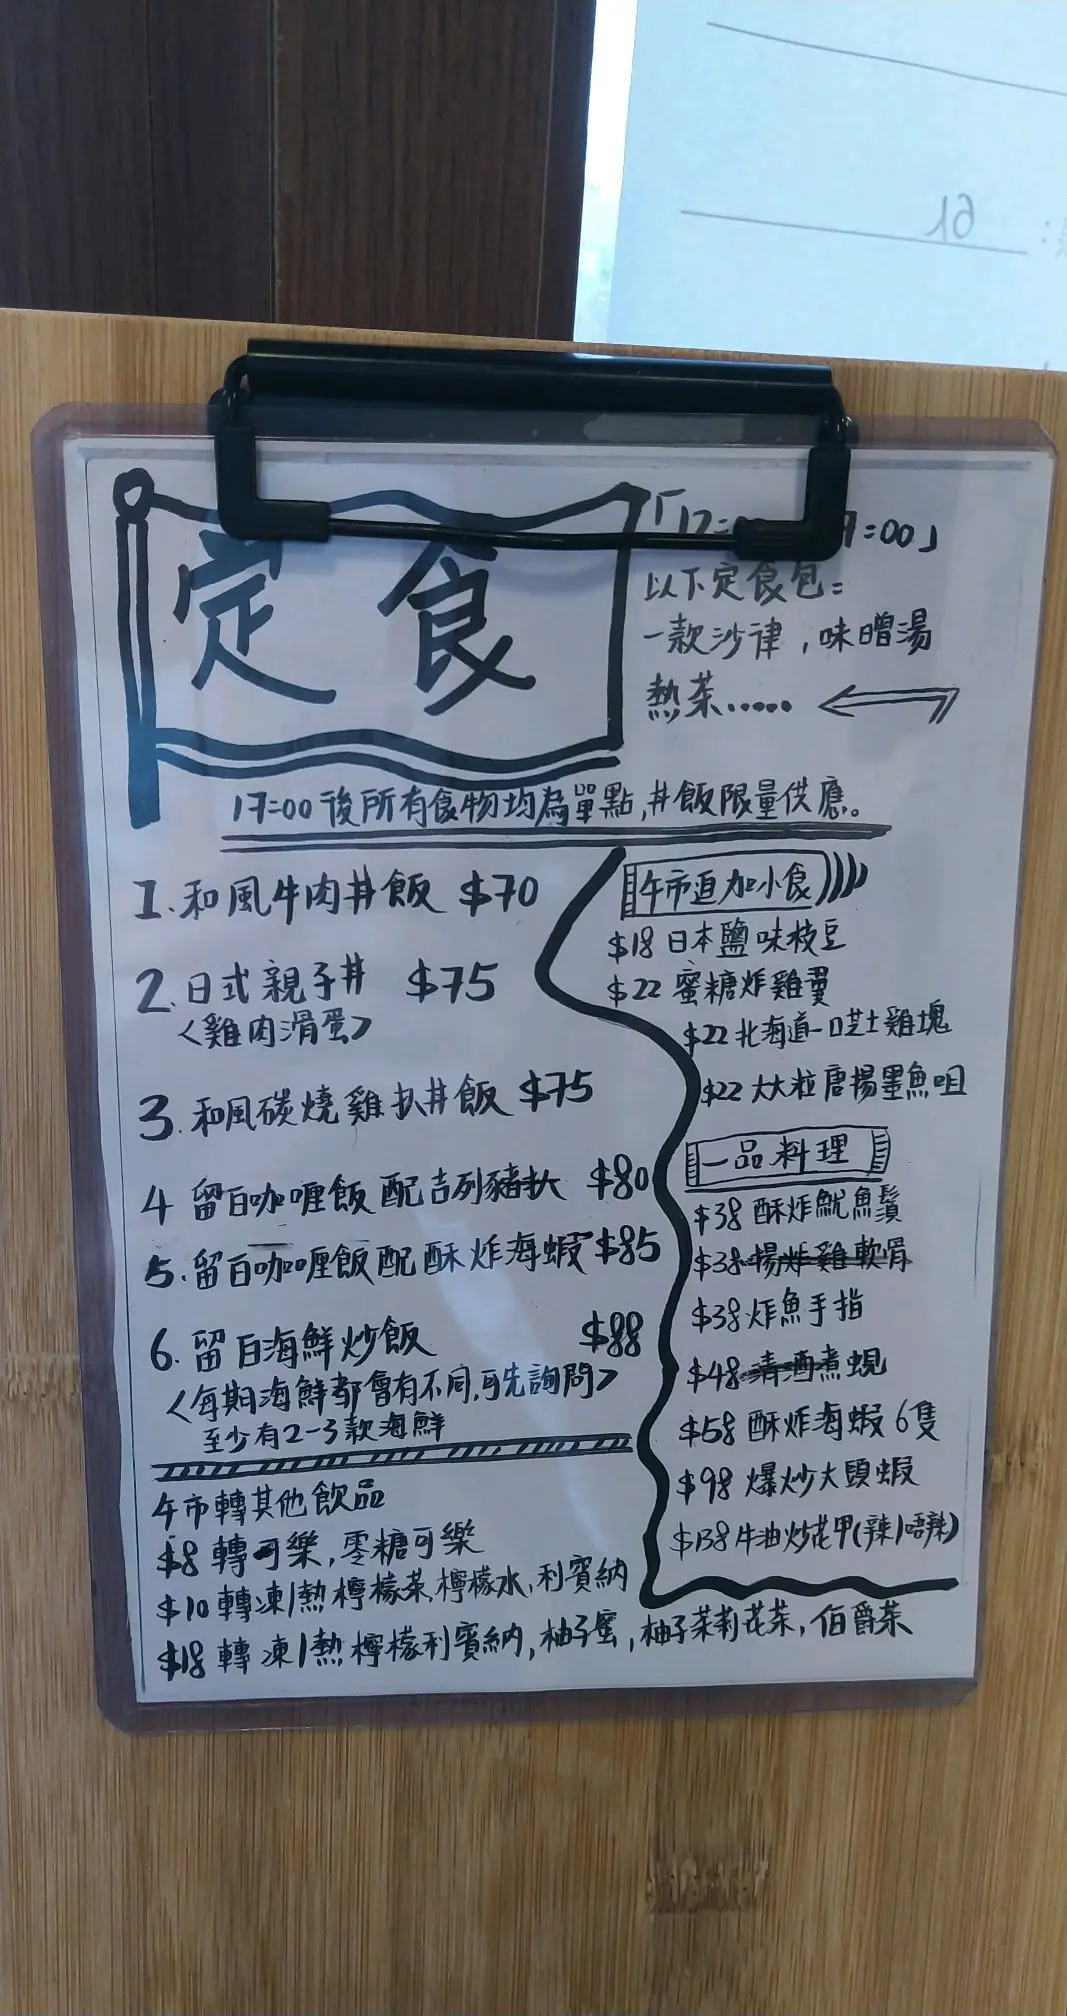 定食
「12=
=00」
以下定食包=
一款沙律,味噌湯
熱茶.....
17=00後所有食物均為單點,丼飯限量供應。
1.和風牛肉丼飯 $70
2.日式親子丼 $75
<雞肉滑蛋>
3.和風碳燒雞扒丼飯 $75
4 留白咖喱飯配吉列豬扒 $80
5.留白咖喱飯配酥炸海蝦 $85
6.留白海鮮炒飯 $88
<每期海鮮都會有不同,可先詢問>
至少有2-3款海鮮
午市轉其他飲品
$8 轉可樂,零糖可樂
$10 轉凍/熱檸檬茶,檸檬水,利賓納
$18 轉凍/熱檸檬利賓納,柚子蜜,柚子茉莉花茶,伯爵茶
午市追加小食
$18 日本鹽味枝豆
$22 蜜糖炸雞翼
$22 北海道一口芝士雞塊
$22 大大粒唐揚墨魚咀
一品料理
$38 酥炸魷魚鬚
$38 揚炸雞軟骨
$38 炸魚手指
$48 清酒煮蜆
$58 酥炸海蝦6隻
$98 爆炒大頭蝦
$138 牛油炒花甲(辣/唔辣)